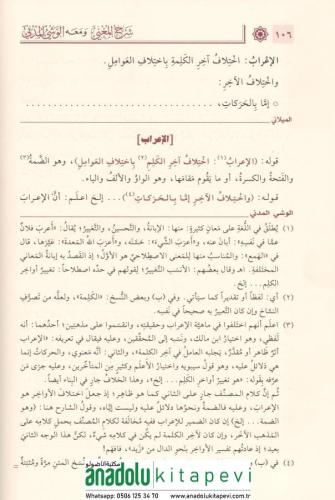 ١٠٦ شرح المغني ومعه الوشي المدني
الإِعْرَابُ: اخْتِلَافُ آخِرِ الكَلِمَةِ بِاخْتِلَافِ العَوَامِلِ.
وَاخْتِلَافُ الآخِرِ:
○ إِمَّا بِالحَرَكَاتِ، . . . . . . . . . . . . . . . . . . . .
الميلاني
[الإعراب]
قوله: (الإِعْرَابُ(١): اخْتِلَافُ آخِرِ الكَلِمِ(٢) بِاخْتِلَافِ العَوَامِلِ)، وهو الضَّمَّةُ(٣)
والفَتْحَةُ والكَسْرَةُ، أو ما يَقُومُ مَقَامَهَا، وهو الواوُ والأَلِفُ والياء.
قوله: (وَاخْتِلَافُ الآخِرِ إِمَّا بِالحَرَكَاتِ(٤)) ... إلخ اعلَمْ: أنَّ الإعرابَ
الوشي المدني
(١) يُطلَقُ في اللُّغةِ على مَعانٍ كثيرةٍ: منها: الإبانةُ، والتَّحسينُ، والتَّغييرُ؛ يُقالُ: «أَعرَبَ فلانٌ
عمَّا في نفسِه»: أبانَ عنه، و«أَعرَبَ الشَّيءَ»: حسَّنَه، و«أَعرَبَ اللهُ المَعِدةَ»: غيَّرَها، قال
في «الهَمع»: والمُناسِبُ منها للمَعنى الاصطلاحيِّ هو الأوَّلُ؛ إذ القَصدُ به إبانةُ المعاني
المختلفةِ. اهـ وقال بعضُهم: الأنسَبُ التَّغييرُ؛ لقولِهم في حدِّه اصطلاحاً: تغييرُ أواخِرِ
الكَلِمِ ... إلخ.
(٢) أي: لفظاً أو تقديراً كما سيأتي. وفي (ب) وبعض النُّسَخ: «الكَلِمَةِ»، ولعلَّه من تَصرُّفِ
النسَّاخ وإن كان التَّعبيرُ به صحيحاً في نَفسِه.
(٣) اعلَم أنهم اختلفوا في ماهيَّةِ الإعرابِ وحقيقتِه، وانقسَموا على مذهبَين؛ أحدُهما: أنه
لفظي، وهو اختيارُ ابن مالك، ونَسَبه إلى المُحقِّقين، وعليه فيقال في تعريفه: «الإعرابُ
أثرٌ ظاهرٌ أو مُقدَّرٌ، يَجلبُه العاملُ في آخرِ الكلمة»، والثاني: أنَّه معنويٌّ، والحركاتُ إنما
هي دلائلُ عليه، وهو قولُ سيبويه واختيارُ الأعلمِ وكثيرٍ مِن المتأخِّرين، وعليه جرَى مَن
عرَّفه بقوله: «هو تغييرُ أواخِرِ الكَلِمِ ... إلخ»، وهذا الخلافُ جارٍ في البِناء أيضاً.
ثُم إنَّ كلامَ المصنِّف جارٍ على الثاني كما هو ظاهر؛ إذ جعلَ اختلافَ الأواخر هو
الإعرابَ، وعليه فالضمةُ ونحوُها دلائلُ عليه وليست إيَّاه، وقولُ الشارحِ هنا: (وهو
الضمة... إلخ) إن كان الضميرُ للإعراب ففيه مُخالَفةٌ لكلام المُصنِّف بحَملِ كلامِه على
المَذهب الآخر، وإن كان لآخر الكلمةِ لم يكن في كلامِه شيءٌ، لكنَّ هذا الوجهَ الثاني
بعيدٌ؛ إذ عادتُهم تفسيرُ الآخِرِ بنحوِ الدال من «زيد»، فافهم!
(٤) في (ب)
مكتبة الأناضول
anadolu kitapevi
Whatsapp: 0506 125 34 70 www.anadolukitapevi.com